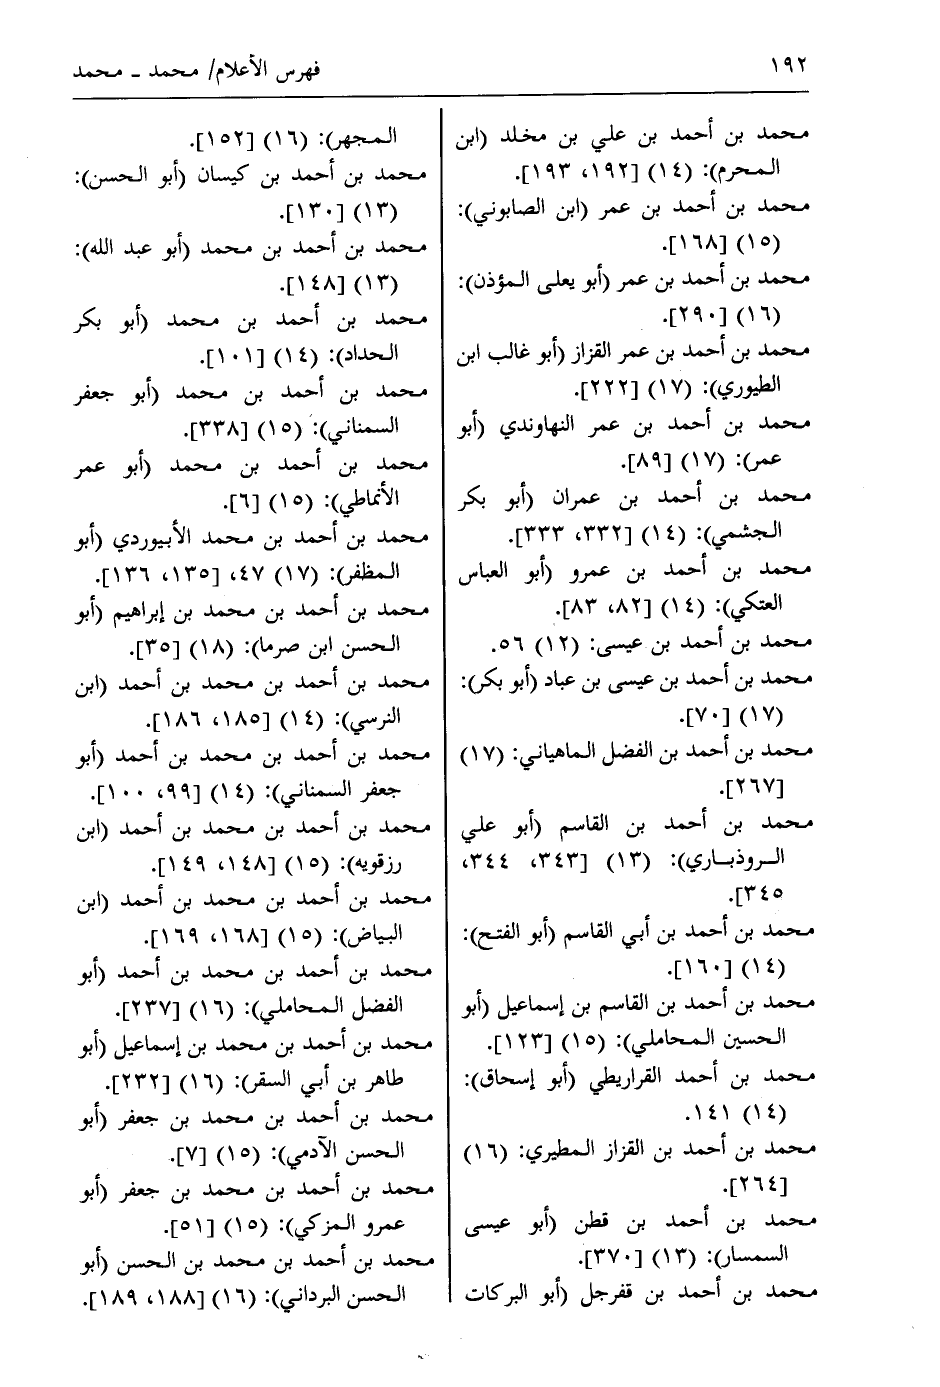 ١٩٢
فهرس الأعلام/ محمد ـ محمد
محمد بن أحمد بن علي بن مخلد (ابن
المحرم): (١٤) [١٩٢، ١٩٣].
محمد بن أحمد بن عمر (ابن الصابوني):
(١٥) [١٦٨].
محمد بن أحمد بن عمر (أبو يعلى المؤذن):
(١٦) [٢٩٠].
محمد بن أحمد بن عمر القزاز (أبو غالب ابن
الطيوري): (١٧) [٢٢٢].
محمد بن أحمد بن عمر النهاوندي (أبو
عمر): (١٧) [٨٩].
محمد بن أحمد بن عمران (أبو بكر
الجشمي): (١٤) [٣٣٢، ٣٣٣].
محمد بن أحمد بن عمرو (أبو العباس
العتكي): (١٤) [٨٢، ٨٣].
محمد بن أحمد بن عيسى: (١٢) ٥٦.
محمد بن أحمد بن عيسى بن عباد (أبو بكر):
(١٧) [٧٠].
محمد بن أحمد بن الفضل الماهياني: (١٧)
[٢٦٧].
محمد بن أحمد بن القاسم (أبو علي
الروذباري): (١٣) [٣٤٣، ٣٤٤،
٣٤٥].
محمد بن أحمد بن أبي القاسم (أبو الفتح):
(١٤) [١٦٠].
محمد بن أحمد بن القاسم بن إسماعيل (أبو
الحسين المحاملي): (١٥) [١٢٣].
محمد بن أحمد القراريطي (أبو إسحاق):
(١٤) ١٤١.
محمد بن أحمد بن القزاز المطيري: (١٦)
[٢٦٤].
محمد بن أحمد بن قطن (أبو عيسى
السمسار): (١٣) [٣٧٠].
محمد بن أحمد بن قفرجل (أبو البركات
المجهر): (١٦) [١٥٢].
محمد بن أحمد بن كيسان (أبو الحسن):
(١٣) [١٣٠].
محمد بن أحمد بن محمد (أبو عبد الله):
(١٣) [١٤٨].
محمد بن أحمد بن محمد (أبو بكر
الحداد): (١٤) [١٠١].
محمد بن أحمد بن محمد (أبو جعفر
السمناني): (١٥) [٣٣٨].
محمد بن أحمد بن محمد (أبو عمر
الأنماطي): (١٥) [٦].
محمد بن أحمد بن محمد الأبيوردي (أبو
المظفر): (١٧) ٤٧، [١٣٥، ١٣٦].
محمد بن أحمد بن محمد بن إبراهيم (أبو
الحسن ابن صرما): (١٨) [٣٥].
محمد بن أحمد بن محمد بن أحمد (ابن
النرسي): (١٤) [١٨٥، ١٨٦].
محمد بن أحمد بن محمد بن أحمد (أبو
جعفر السمناني): (١٤) [٩٩، ١٠٠].
محمد بن أحمد بن محمد بن أحمد (ابن
رزقويه): (١٥) [١٤٨، ١٤٩].
محمد بن أحمد بن محمد بن أحمد (ابن
البياض): (١٥) [١٦٨، ١٦٩].
محمد بن أحمد بن محمد بن أحمد (أبو
الفضل المحاملي): (١٦) [٢٣٧].
محمد بن أحمد بن محمد بن إسماعيل (أبو
طاهر بن أبي السقر): (١٦) [٢٣٢].
محمد بن أحمد بن محمد بن جعفر (أبو
الحسن الآدمي): (١٥) [٧].
محمد بن أحمد بن محمد بن جعفر (أبو
عمرو المزكي): (١٥) [٥١].
محمد بن أحمد بن محمد بن الحسن (أبو
الحسن البرداني): (١٦) [١٨٨، ١٨٩].